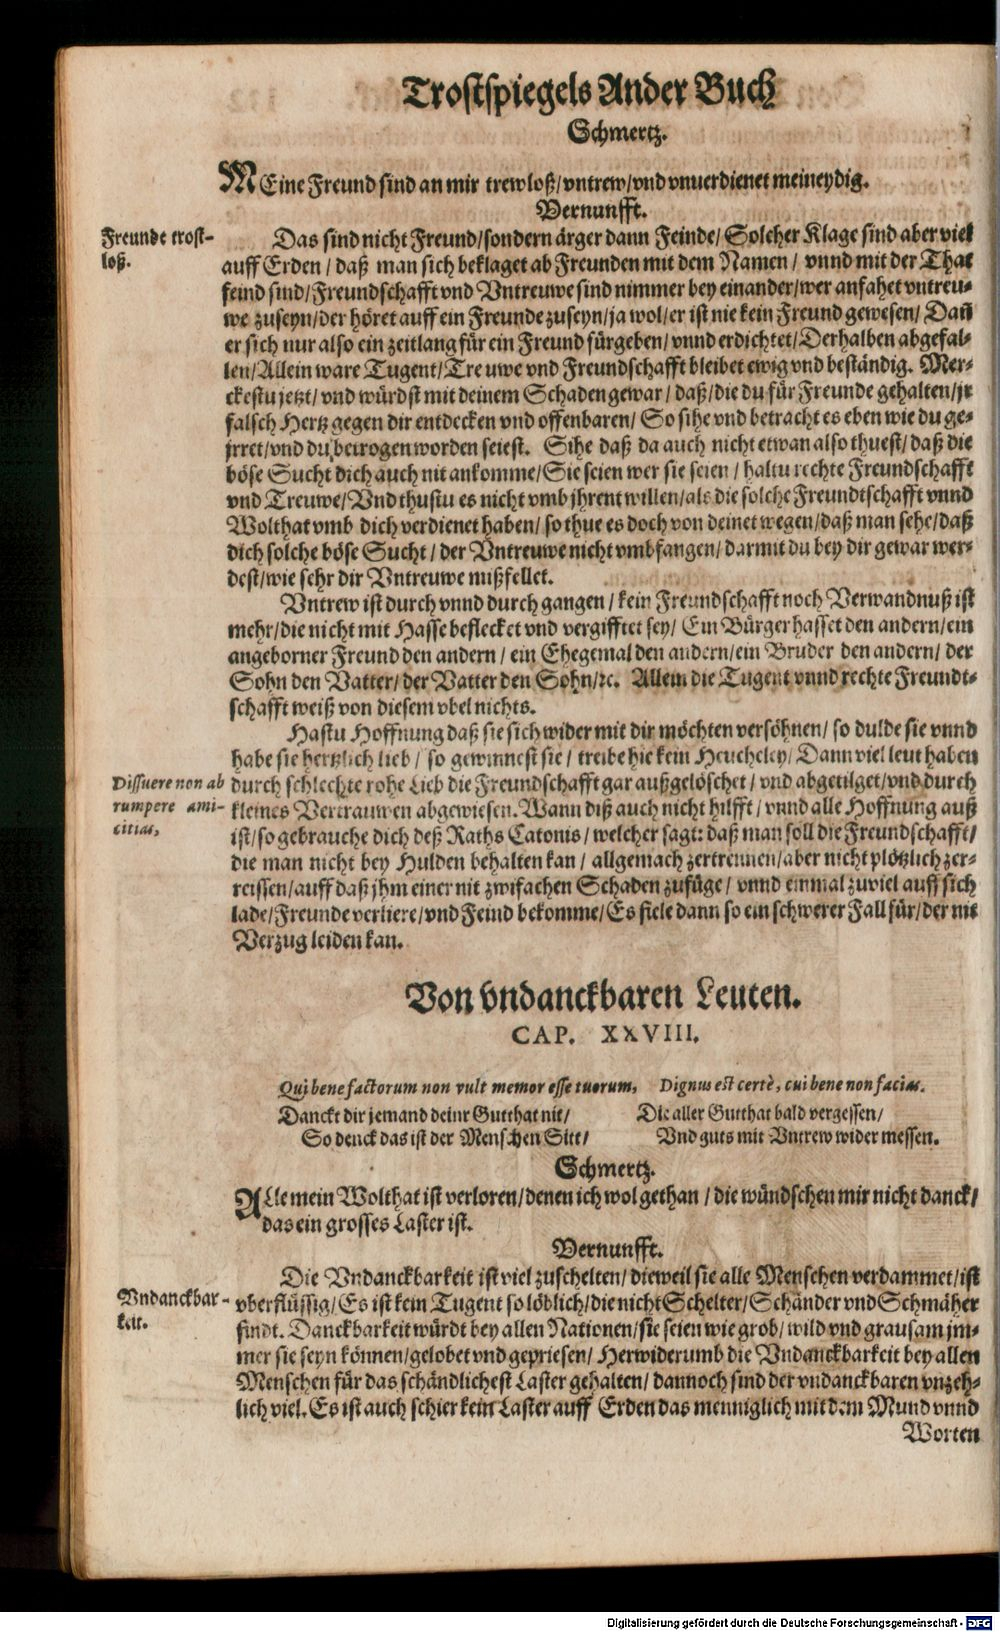 Trostspiegels Ander Buch
Schmertz.
MEine Freund sind an mir trewloß/vntrew/vnd vnuerdienet meineydig.
Vernunfft.
Freunde trost-
loß.
Das sind nicht Freund/sondern ärger dann Feinde/Solcher Klage sind aber viel
auff Erden/daß man sich beklaget ab Freunden mit dem Namen/vnnd mit der That
feind sind/Freundschafft vnd Vntreuwe sind nimmer bey einander/wer anfahet vntreu-
we zuseyn/der höret auff ein Freunde zuseyn/ja wol/er ist nie kein Freund gewesen/Dañ
er sich nur also ein zeitlang für ein Freund fürgeben/vnnd erdichtet/Derhalben abgefal-
len/Allein ware Tugent/Treuwe vnd Freundschafft bleibet ewig vnd beständig. Mer-
ckestu jetzt/vnd würdst mit deinem Schaden gewar/daß/die du für Freunde gehalten/jr
falsch Hertz gegen dir entdecken vnd offenbaren/So sihe vnd betracht es eben wie du ge-
jrret/vnd du betrogen worden seiest. Sihe daß da auch nicht etwan also thuest/daß die
böse Sucht dich auch nit ankomme/Sie seien wer sie seien/haltu rechte Freundschafft
vnd Treuwe/Vnd thustu es nicht vmb jhrent willen/als die solche Freundtschafft vnnd
Wolthat vmb dich verdienet haben/so thue es doch von deinet wegen/daß man sehe/daß
dich solche böse Sucht/der Vntreuwe nicht vmbfangen/darmit du bey dir gewar wer-
dest/wie sehr dir Vntreuwe mißfellet.
Vntrew ist durch vnnd durch gangen/kein Freundschafft noch Verwandnuß ist
mehr/die nicht mit Hasse beflecket vnd vergifftet sey/Ein Bürger hasset den andern/ein
angeborner Freund den andern/ein Ehegemal den andern/ein Bruder den andern/der
Sohn den Vatter/der Vatter den Sohn/ꝛc. Allein die Tugent vnnd rechte Freundt-
schafft weiß von diesem vbel nichts.
Hastu Hoffnung daß sie sich wider mit dir möchten versöhnen/so dulde sie vnnd
habe sie hertzlich lieb/so gewinnest sie/treibe hie kein Heucheley/Dann viel leut haben
Dissuere non ab
rumpere ami-
citias,
durch schlechte rohe Lieb die Freundschafft gar außgelöschet/vnd abgetilget/vnd durch
kleines Vertrauwen abgewiesen. Wann diß auch nicht hilfft/vnnd alle Hoffnung auß
ist/so gebrauche dich deß Raths Catonis/welcher sagt: daß man soll die Freundschafft/
die man nicht bey Hulden behalten kan/allgemach zertrennen/aber nicht plötzlich zer-
reissen/auff daß jhm einer nit zwifachen Schaden zufüge/vnnd einmal zuviel auff sich
lade/Freunde verliere/vnd Feind bekomme/Es fiele dann so ein schwerer Fall für/der nit
Verzug leiden kan.
Von vndanckbaren Leuten.
CAP. XXVIII.
Qui bene factorum non vult memor esse tuorum, Dignus est certè, cui bene non facias.
Danckt dir jemand deinr Gutthat nit/
So denck das ist der Menschen Sitt/
Die aller Gutthat bald vergessen/
Vnd guts mit Vntrew wider messen.
Schmertz.
ALle mein Wolthat ist verloren/denen ich wol gethan/die wündschen mir nicht danck/
das ein grosses Laster ist.
Vernunfft.
Vndanckbar-
keit.
Die Vndanckbarkeit ist viel zuschelten/dieweil sie alle Menschen verdammet/ist
vberflüssig/Es ist kein Tugent so löblich/die nicht Schelter/Schänder vnd Schmäher
findt. Danckbarkeit würdt bey allen Nationen/sie seien wie grob/wild vnd grausam jm-
mer sie seyn können/gelobet vnd gepriesen/Herwiderumb die Vndanckbarkeit bey allen
Menschen für das schändlichest Laster gehalten/dannoch sind der vndanckbaren vnzeh-
lich viel. Es ist auch schier kein Laster auff Erden das menniglich mit dem Mund vnnd
Worten
Digitalisierung gefördert durch die Deutsche Forschungsgemeinschaft - DFG